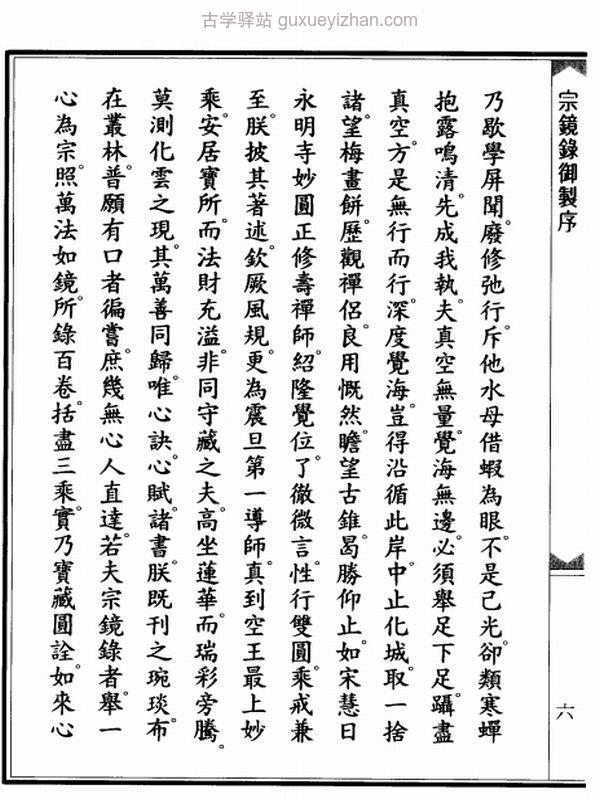 古学驿站 guxueyizhan.com
宗鏡錄御製序
六
乃歇學屏聞。廢修弛行。斥他水母借蝦為眼。不是己光。卻類寒蟬
抱露鳴清。先成我執。夫真空無量。覺海無邊。必須舉足下足。躡盡
真空。方是無行而行。深度覺海。豈得沿循此岸。中止化城。取一捨
諸。望梅畫餅。歷觀禪侶。良用慨然。瞻望古錐。曷勝仰止。如宋慧日
永明寺妙圓正修壽禪師。紹隆覺位。了徹微言。性行雙圓。乘戒兼
至。朕披其著述。欽厥風規。更為震旦第一導師。真到空王最上妙
乘。安居寶所。而法財充溢。非同守藏之夫。高坐蓮華。而瑞彩旁騰。
莫測化雲之現。其萬善同歸。唯心訣。心賦。諸書。朕既刊之琬琰。布
在叢林。普願有口者徧嘗。庶幾無心人直達。若夫宗鏡錄者。舉一
心為宗。照萬法如鏡。所錄百卷。括盡三乘。實乃寶藏圓詮。如來心